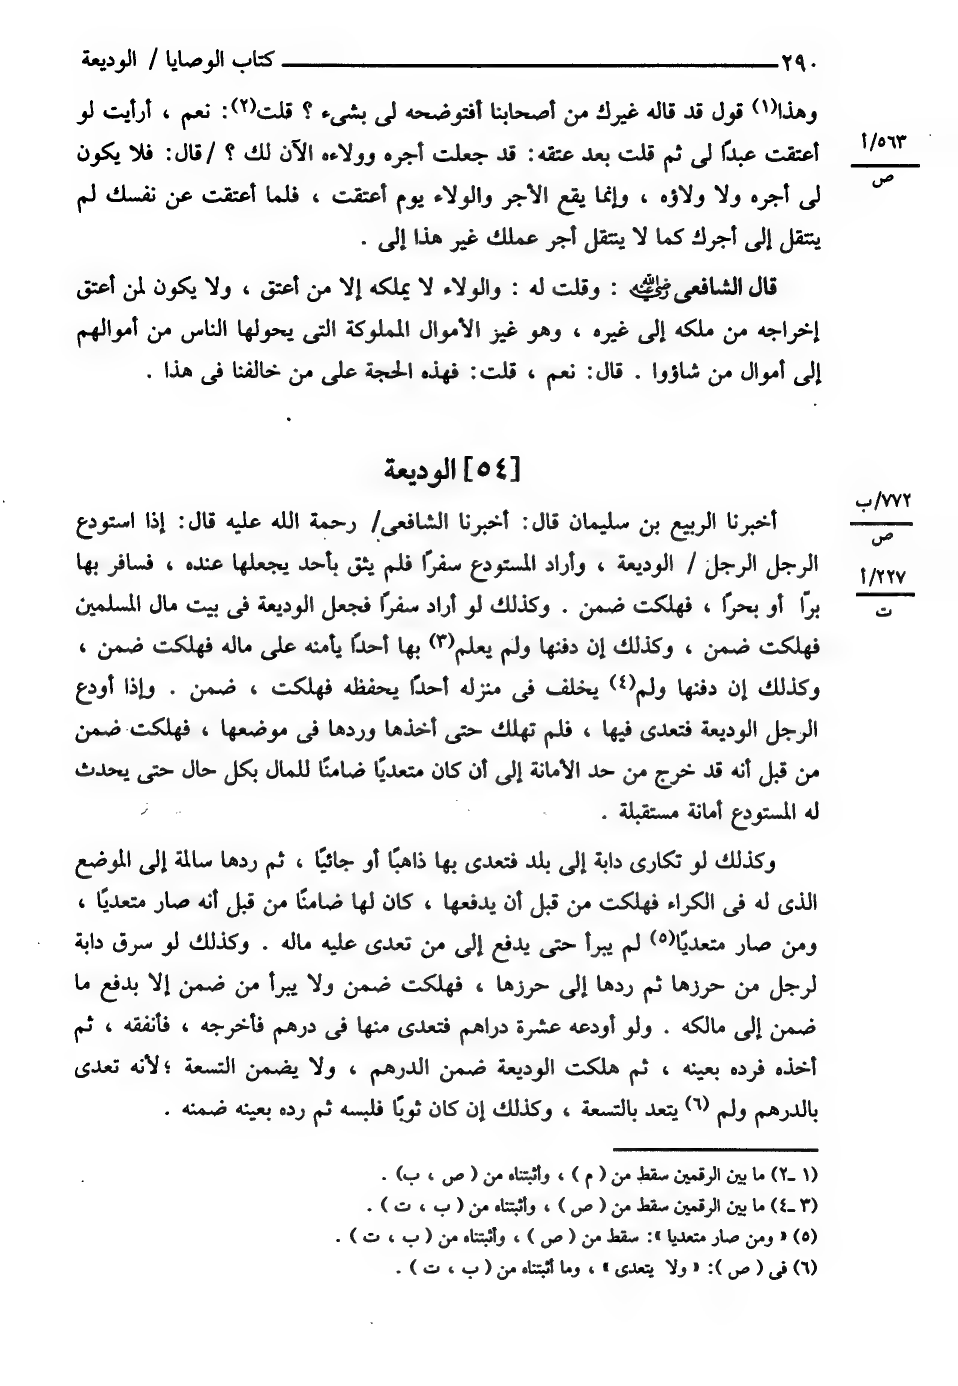 ٢٩٠ ــــــــــــــــــــــــــــــــــ كتاب الوصايا / الوديعة
وهذا(١) قول قد قاله غيرك من أصحابنا أفتوضحه لى بشىء ؟ قلت(٢): نعم ، أرأيت لو
أعتقت عبدًا لى ثم قلت بعد عتقه: قد جعلت أجره وولاءه الآن لك ؟ /قال: فلا يكون
٥٦٣/أ
ص
لى أجره ولا ولاؤه ، وإنما يقع الأجر والولاء يوم أعتقت ، فلما أعتقت عن نفسك لم
ينتقل إلى أجرك كما لا ينتقل أجر عملك غير هذا إلى .
قال الشافعى رضي الله عنه : وقلت له : والولاء لا يملكه إلا من أعتق ، ولا يكون لمن أعتق
إخراجه من ملكه إلى غيره ، وهو غيز الأموال المملوكة التى يحولها الناس من أموالهم
إلى أموال من شاؤوا . قال: نعم ، قلت: فهذه الحجة على من خالفنا فى هذا .
[٥٤] الوديعة
٧٧٢/ب
ص
أخبرنا الربيع بن سليمان قال: أخبرنا الشافعى/ رحمة الله عليه قال: إذا استودع
الرجل الرجل / الوديعة ، وأراد المستودع سفرًا فلم يثق بأحد يجعلها عنده ، فسافر بها
٢٢٧/أ
ت
برًا أو بحرًا ، فهلكت ضمن . وكذلك لو أراد سفرًا فجعل الوديعة فى بيت مال المسلمين
فهلكت ضمن ، وكذلك إن دفنها ولم يعلم(٣) بها أحدًا يأمنه على ماله فهلكت ضمن ،
وكذلك إن دفنها ولم(٤) يخلف فى منزله أحدًا يحفظه فهلكت ، ضمن . وإذا أودع
الرجل الوديعة فتعدى فيها ، فلم تهلك حتى أخذها وردها فى موضعها ، فهلكت ضمن
من قبل أنه قد خرج من حد الأمانة إلى أن كان متعديًا ضامنًا للمال بكل حال حتى يحدث
له المستودع أمانة مستقبلة .
وكذلك لو تكارى دابة إلى بلد فتعدى بها ذاهبًا أو جائيًا ، ثم ردها سالمة إلى الموضع
الذى له فى الكراء فهلكت من قبل أن يدفعها ، كان لها ضامنًا من قبل أنه صار متعديًا ،
ومن صار متعديًا(٥) لم يبرأ حتى يدفع إلى من تعدى عليه ماله . وكذلك لو سرق دابة
لرجل من حرزها ثم ردها إلى حرزها ، فهلكت ضمن ولا يبرأ من ضمن إلا بدفع ما
ضمن إلى مالكه . ولو أودعه عشرة دراهم فتعدى منها فى درهم فأخرجه ، فأنفقه ، ثم
أخذه فرده بعينه ، ثم هلكت الوديعة ضمن الدرهم ، ولا يضمن التسعة ؛لأنه تعدى
بالدرهم ولم (٦) يتعد بالتسعة ، وكذلك إن كان ثوبًا فلبسه ثم رده بعينه ضمنه .
(١ ـ٢) ما بين الرقمين سقط من ( م ) ، وأثبتناه من ( ص ، ب) .
(٣ ـ٤) ما بين الرقمين سقط من ( ص ) ، وأثبتناه من ( ب ، ت ) .
(٥) « ومن صار متعديا »: سقط من ( ص ) ، وأثبتناه من ( ب ، ت ) .
(٦) فى ( ص ): « ولا يتعدى » ، وما أثبتناه من ( ب ، ت ) .